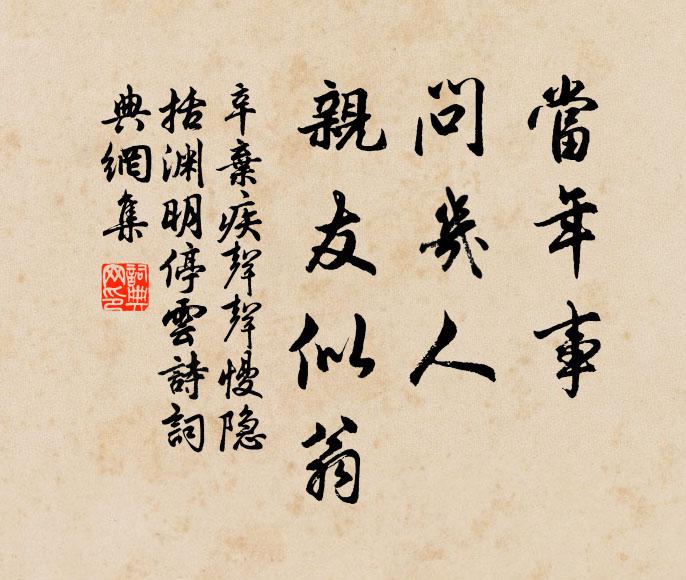 當年事
問幾人
親友似翁
辛棄疾聲聲慢隐
括渊明停雲詩詞
典網集
詞典網印